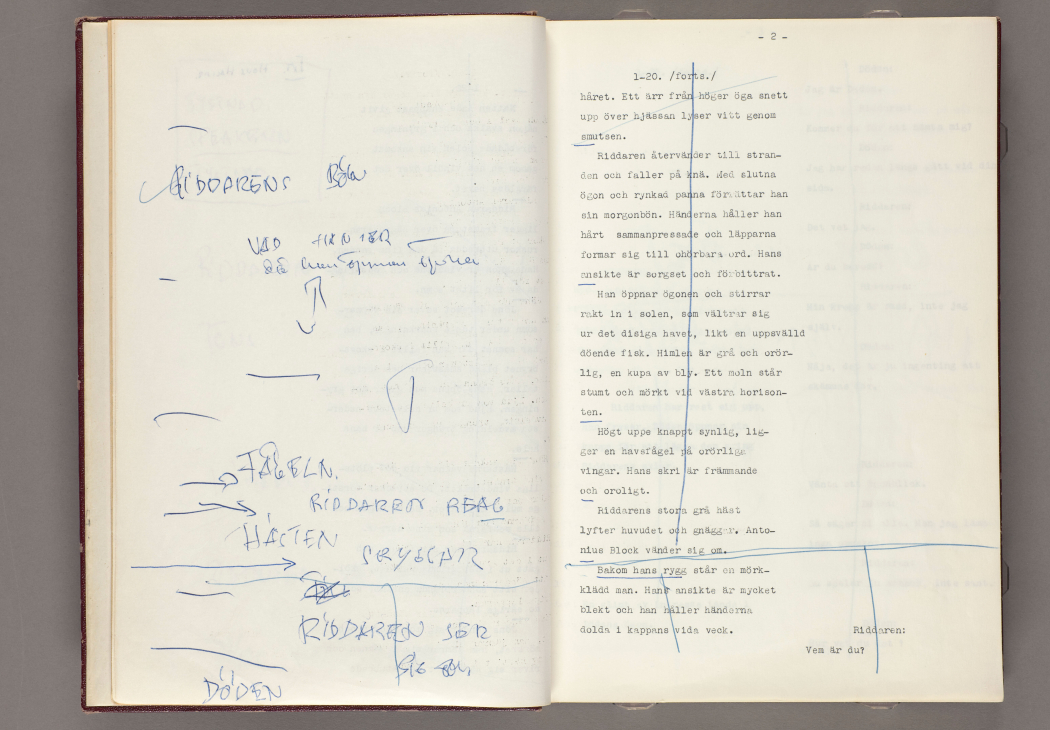 RIDDARENS Bön
VAD HAN SER
då han öppnar ögonen
FÅGELN.
RIDDAREN REAG
HÄSTEN
RIDDAREN SER
sig om.
DÖDEN
- 2 -
1-20. /forts./
håret. Ett ärr från höger öga snett
upp över hjässan lyser vitt genom
smutsen.
Riddaren återvänder till stran-
den och faller på knä. Med slutna
ögon och rynkad panna förrättar han
sin morgonbön. Händerna håller han
hårt sammanpressade och läpparna
formar sig till ohörbara ord. Hans
ansikte är sorgset och förbittrat.
Han öppnar ögonen och stirrar
rakt in i solen, som vältrar sig
ur det disiga havet, likt en uppsvälld
döende fisk. Himlen är grå och orör-
lig, en kupa av bly. Ett moln står
stumt och mörkt vid västra horison-
ten.
Högt uppe knappt synlig, lig-
ger en havsfågel på orörliga
vingar. Hans skri är främmande
och oroligt.
Riddarens stora grå häst
lyfter huvudet och gnäggar. Anto-
nius Block vänder sig om.
Bakom hans rygg står en mörk-
klädd man. Hans ansikte är mycket
blekt och han håller händerna
dolda i kappans vida veck.
Riddaren:
Vem är du?